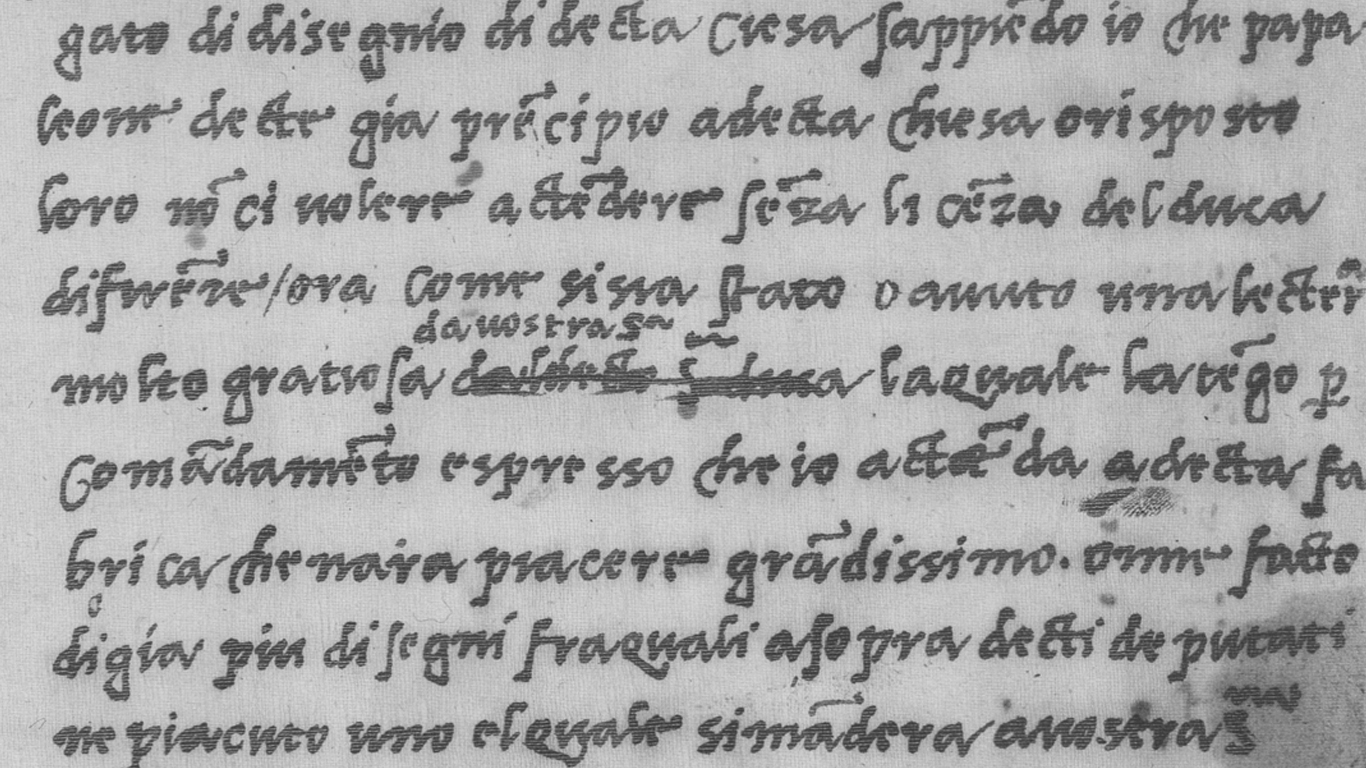 gato di disegnio di decta Ciesa sappiēdo io che papa
leone decte gia prēcipio adecta chiesa orisposto
loro nō ci volere actēdere sēza licēza del duca
difirēze/ora Come si sia stato o auuto una lecter
da uostra S
molto gratiosa laquale la tēgo p
Comādamēto espresso che io actēda adecta fa
brica che nara piacere grādissimo. onne facto
digia piu disegni fraquali asopra decti deputati
ne piacuto uno elquale simādera auostra S